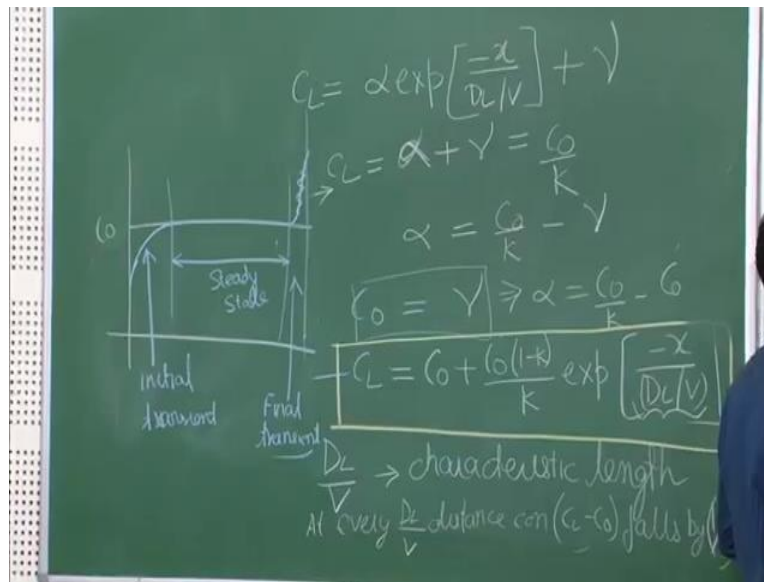 C_L = α exp[-x / D_L/V] + γ
→ C_L = α + γ = C_0/K
α = C_0/K - γ
C_0 = γ ⇒ α = C_0/K - C_0
C_L = C_0 + C_0(1-K)/K exp[-x / (D_L/V)]
D_L/V → characteristic length
At every D_L/V distance con (C_L-C_0) falls by
C_0
Steady
State
Initial
transient
Final
transient